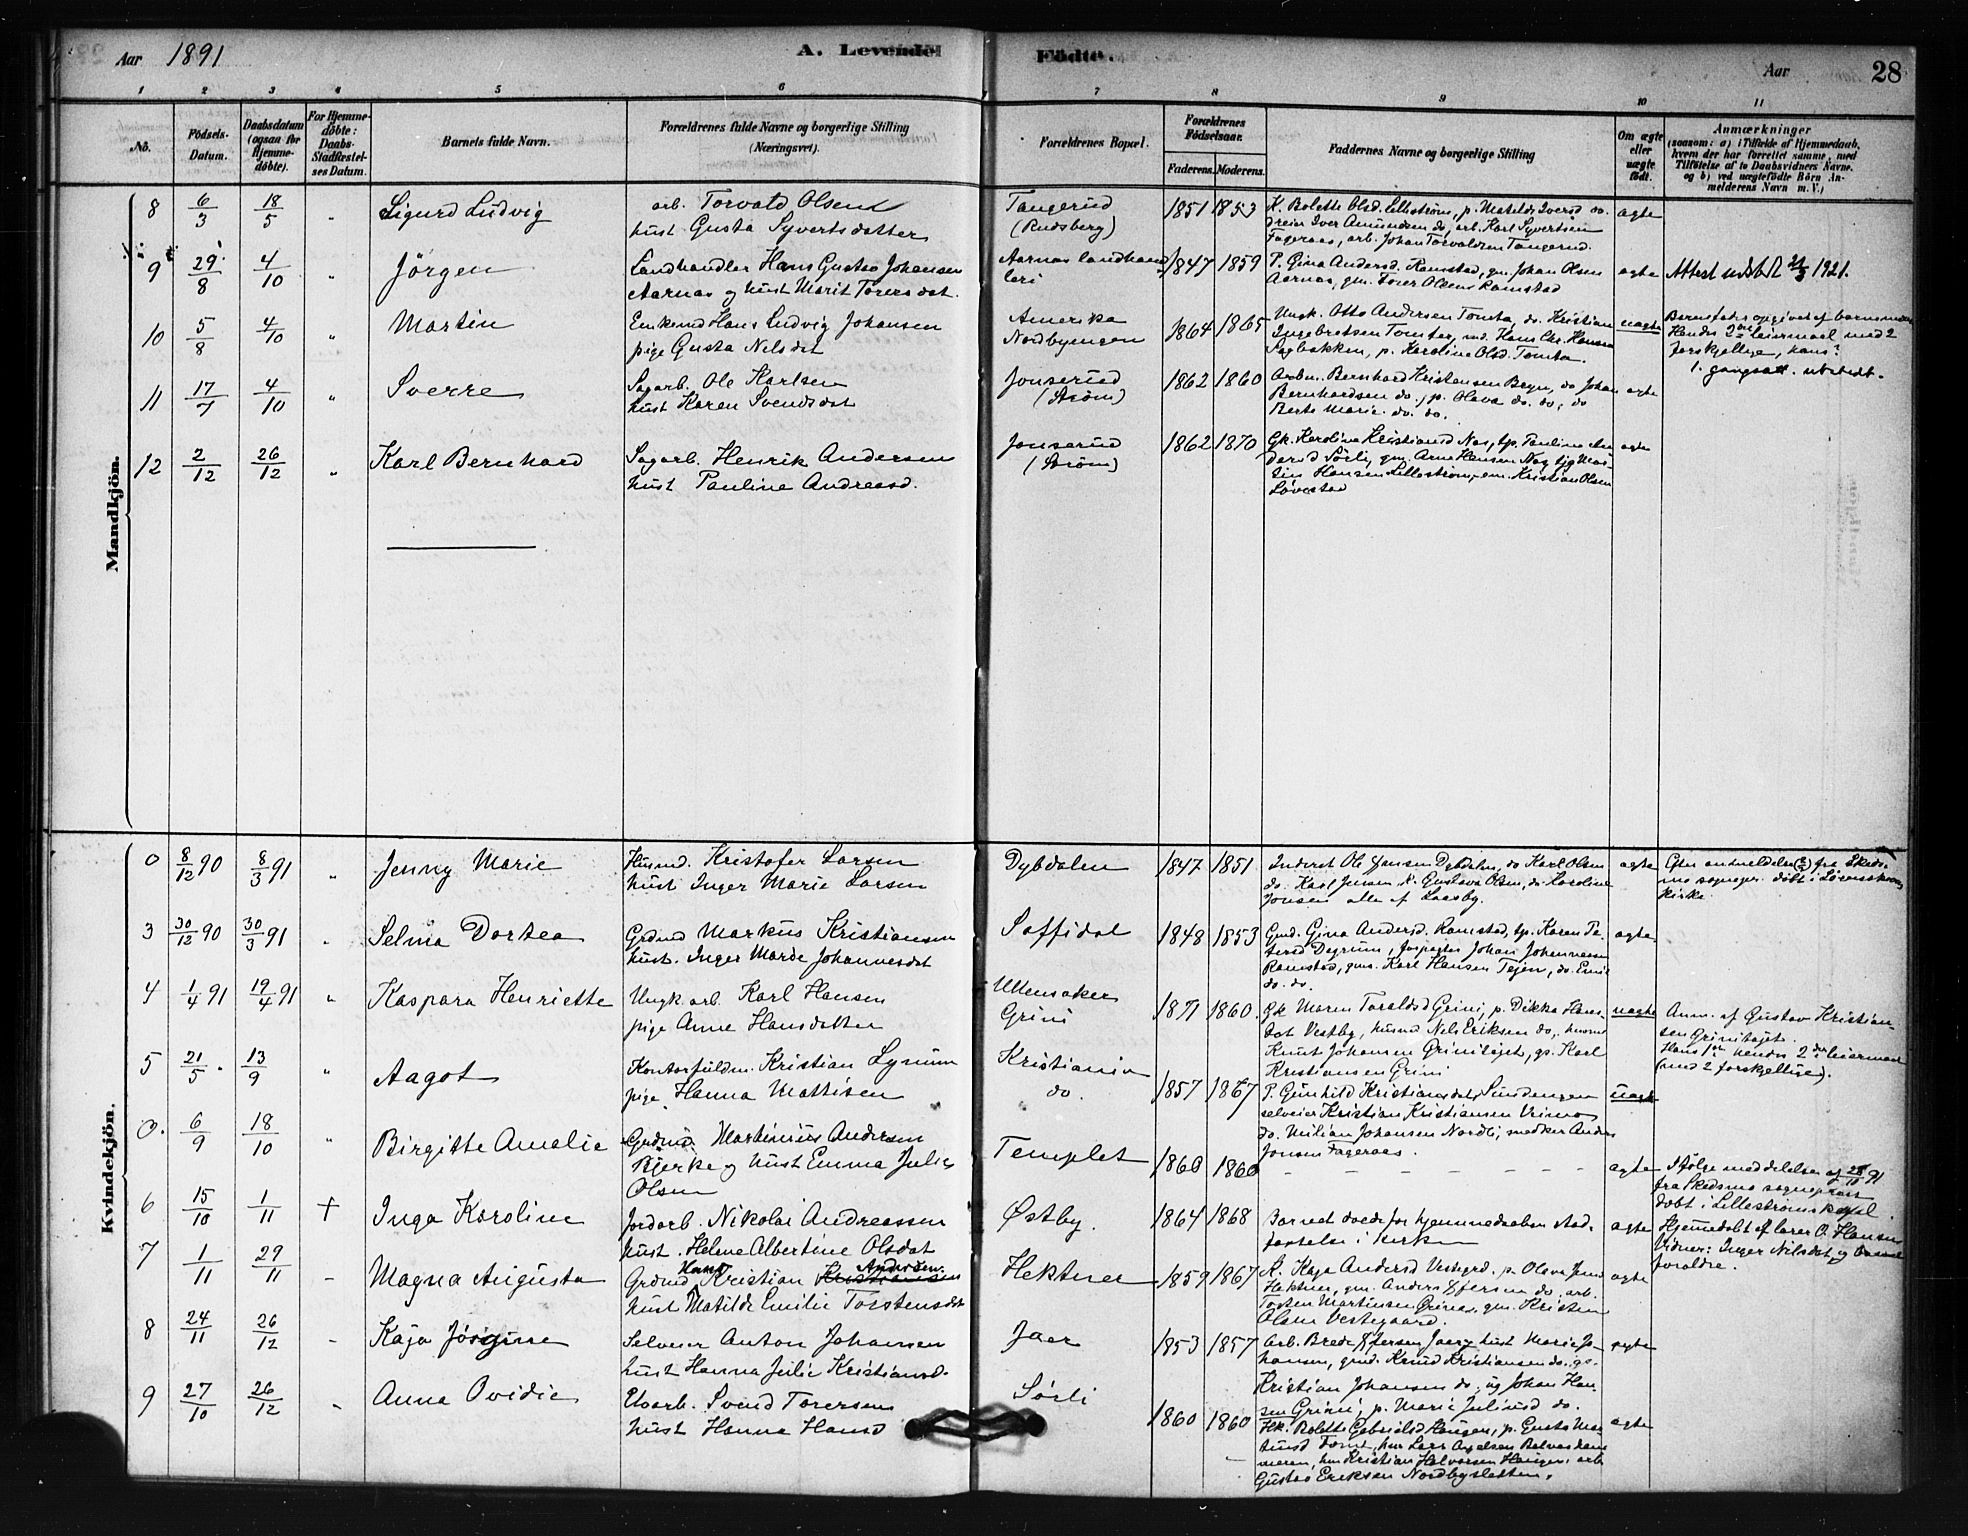 Aar 1891 A. Levende Födte. Aar 28
1 2 3 4 5 6 7 8 9 10 11
No. Födsels-Datum. Daabsdatum (ogsaa for Hjemme-döbte). For Hjemme-döbte: Daabs-Stadfæstel-ses Datum. Barnets fulde Navn. Forældrenes fulde Navne og borgerlige Stilling (Næringsvei). Forældrenes Bopæl. Forældrenes Födselsaar. Faderens. Moderens. Faddernes Navne og borgerlige Stilling Om ægte eller uægte födt. Anmærkninger (saasom: a) i Tilfælde af Hjemmedaab, hvem der har forrettet samme, med Tilföielse af to Daabsvidners Navne, og b) ved uægtefödte Börn An-melderens Navn m. V.)
Mandkjön.
8 6/3 18/5 " Sigurd Ludvig
arb. Torvald Olsen
hust Gusta Syvertsdatter
Tangerud
(Rudsberg)
1851 1853
K. Bolette Olsd. Lillestrøm, p. Matilde Iversd do.
dreier Iver Amundsen do, arb. Karl Syvertsen
Fageraas, arb. Johan Torvaldsen Tangerud.
ægte
9 29/8 4/10 " Jörgen
Landhandler Hans Gustav Johansen
Aarnæs og hust Marit Torersdat.
Aarnæs landhand
leri
1847 1859
P. Gina Andersd. Ramstad, gm. Johan Olsen
Aarnæs, gm. Torer Olsen Ramstad
ægte
Attest udstedt 1921.
10 5/8 4/10 " Martin
Enkemd Hans Ludvig Johansen
pige Gusta Nilsdat
Amerika
Nordbyengen
1864 1865
Ungk. Otto Andersen Tomta, do. Kristian
Ingebretsen Tomter, md. Hans Chr. Hansen
Sagbakken, p. Karoline Olsd. Tomta.
uægte
Barnefader opgivet af barnemoder
Hendes 2den leiermaal med 2
forskjellige, hans?
1. gangsatt. udstedt.
11 17/7 4/10 " Sverre
Sagarb. Ole Karlsen
hust Karen Svendsdat
Jonserud
(Strøm)
1862 1860
Bernhard Kristensen Bryn, do Johan
Bernhardsen do., p. Olava do. do, do
Berte Marie do. do.
ægte
12 2/12 26/12 " Karl Bernhard
Sagarb. Henrik Andersen
hust Pauline Andreasd.
Jonserud
(Strøm)
1862 1870
Gk. Karoline Kristiansd Næs, tp. Pauline An
dersd Sörli, gm. Arne Hansen Næs
tin Hansen Lillestrøm, em. Kristian Olsen
Løvestad
ægte
Kvindekjön.
0 8/12 90 8/3 91 " Jenny Marie
Husmd. Kristofer Larsen
hust Inger Marie Larsen
Dybdalen
1847 1851
Inderst Ole Jensen Dybdalen, do Karl Olsen
do. Karl Jensen K. Gustava Olsen, do Karoline
Jensen alle af Laasby.
ægte
Efter anmeldelse fra Skeds-
mo sognepr. döbt i Lørenskog
kirke
3 30/12 90 30/3 91 " Selma Dortea
Grdmd Markus Kristiansen
hust. Inger Marie Johannesdat
Saffidal
1848 1853
Gmd. Gina Andersd. Ramstad, tp. Karen Pe-
tersd Dyrum, forpagter Johan Johannesen
Ramstad, gms. Karl Hansen Tejen, do. Emil
do. do.
ægte
4 1/4 91 19/4 91 " Kaspara Henriette
Ungk. arb. Karl Hansen
pige Anne Hansdatter
Ullensaker
Grini
1871 1860.
Gk. Maren Taraldsd Grini, p. Dikka Hans-
dat Vestby, husmd Nils Eriksen do, husmd
Knut Johansen Grinitajet, gs. Karl
Kristiansen Grini
uægte
Anm. af Gustav Kristian-
sen Grinitajet.
Hans 1ste hendes 2det leiermaal
(med 2 forskjellige).
5 21/5. 13/9 " Aagot
Kontorfuldm. Kristian Lynum
pige Hanna Mathisen
Kristiania
do.
1857 1867
P. Gunhild Kristiansdat Sundengen
selveier Kristian Kristiansen
do. Milian Johansen Nordli, snedker Anders
Jonsen Fageraas.
uægte
0. 6/9 18/10 " Birgitte Amalie
Grdmd Martinius Andersen
Bjerke og hust Emma Julie
Olsen
Templet
1860 1860
- - - - - - -
ægte
Ifølge meddelelse af 28/11 91
fra Skedsmo sogneprest
döbt i Lillestrøms kapel.
6 15/10 1/11 † Inga Karoline
Jordarb. Nikolai Andreassen
hust. Helene Albertine Olsdat
Østby.
1864 1868
Barnet døde før hjemmedaabens stad-
fæstelse i kirken
ægte
Hjemmedøbt af lærer O. Hansen
Vidner: Inger Nilsdat og barnets
forældre.
7 1/11 29/11 - Magna Augusta
Grdmd Hans Kristian Kristiansen Andersen.
hust Matilde Emilie Torstensdat
Hektner
1859 1867
K. Kaja Andersd Vestgrd. p. Olava Jensd
Hektner, gm. Anders do. arb.
Torsten Martinsen Grinaa, gm. Kristian
Olsen Vestegaard.
ægte
8 24/11 26/12 - Kaja Jörgine
Selveier Anton Johansen
hust Hanna Julie Kristiansd.
Jaer
1853 1857
Arb. Brede Jaer, hust Marie Jo-
hansen, grmd. Knud Kristiansen do. gs.
Kristian Johansen do, ug Johan Han-
sen Grinni, p. Marie Juliusd do.
ægte
9 27/10 26/12 - Anna Ovidie
Elvarb. Svend Torersen
hust Hanna Hansd
Sørli
1860 1860
Hk. Bolette Gabrielsd Haugen, p. Gusta Mar-
tinsd Tomt, hm Lars Axelsen
meren, hm Kristian Halvorsen Haugen, arb.
Gustav Eriksen Nordbysletten.
ægte